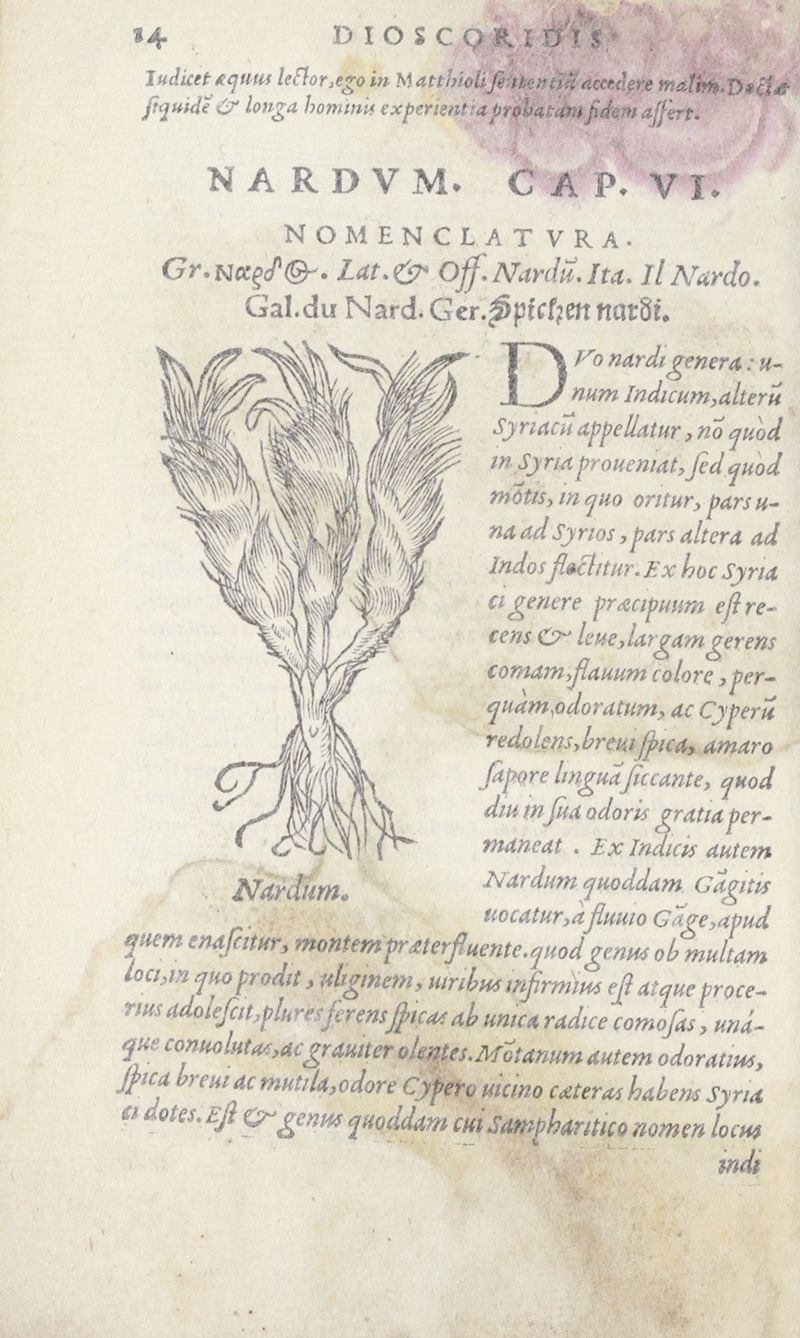 14 DIOSCORIDIS
Iudicet æquus lector, ego in Matthioli sententiã accedere malim. Doctæ
siquidẽ & longa hominis experientia probatam fidem affert.
NARDVM. CAP. VI.
NOMENCLATVRA.
Gr. Ναρδ@. Lat. & Off. Nardũ. Ita. Il Nardo.
Gal. du Nard. Ger. Spicken nardi.
DVo nardi genera: u-
num Indicum, alterũ
Syriacũ appellatur, nõ quòd
in Syria proueniat, sed quòd
mõtis, in quo oritur, pars u-
na ad Syrios, pars altera ad
Indos flectitur. Ex hoc Syria
ci genere præcipuum est re-
cens & leue, largam gerens
comam, flauum colore, per-
quàm odoratum, ac Cyperũ
redolens, breui spica, amaro
sapore linguã siccante, quod
diu in sua odoris gratia per-
maneat. Ex Indicis autem
Nardum quoddam Gãgitis
uocatur, à fluuio Gãge, apud
Nardum.
quem enascitur, montem præterfluente. quod genus ob multam
loci, in quo prodit, uliginem, uiribus infirmius est atque proce-
rius adolescit, plures ferens spicas ab unica radice comosas, uná-
que conuolutas, ac grauiter olentes. Mõtanum autem odoratius,
spica breui ac mutila, odore Cypero uicino cæteras habens Syria
ci dotes. Est & genus quoddam cui Sampharitico nomen locus
indi